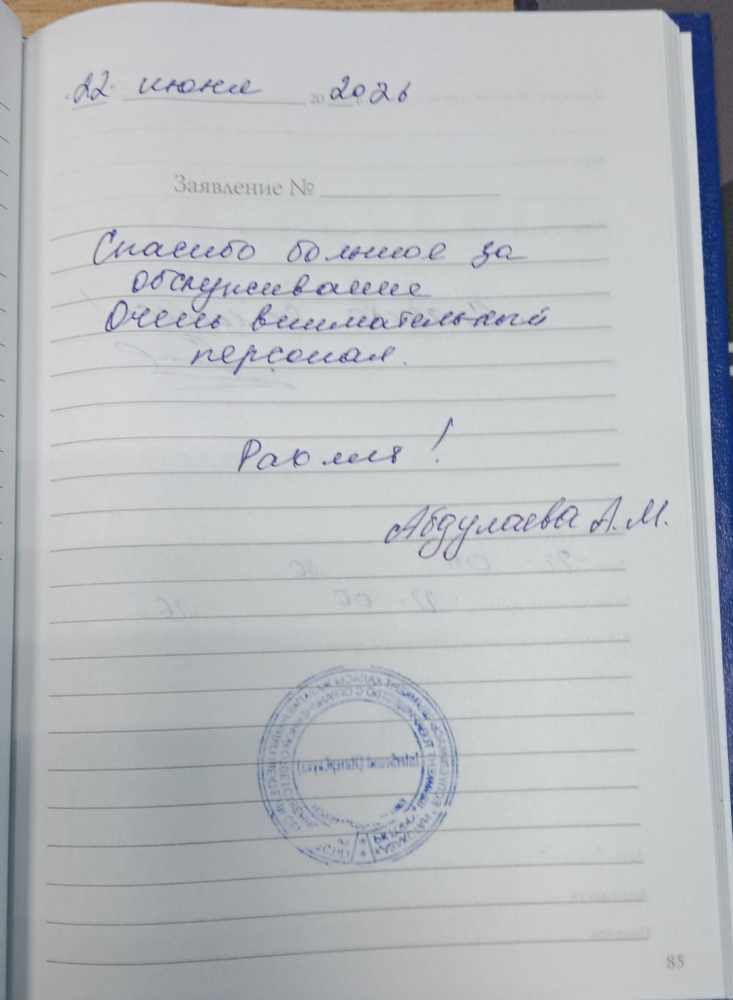 22 июня 20 2026
Заявление №
Спасибо большое за
обслуживание
Очень внимательный
персонал.
Рахмет!
Абдулаева А.М.
85